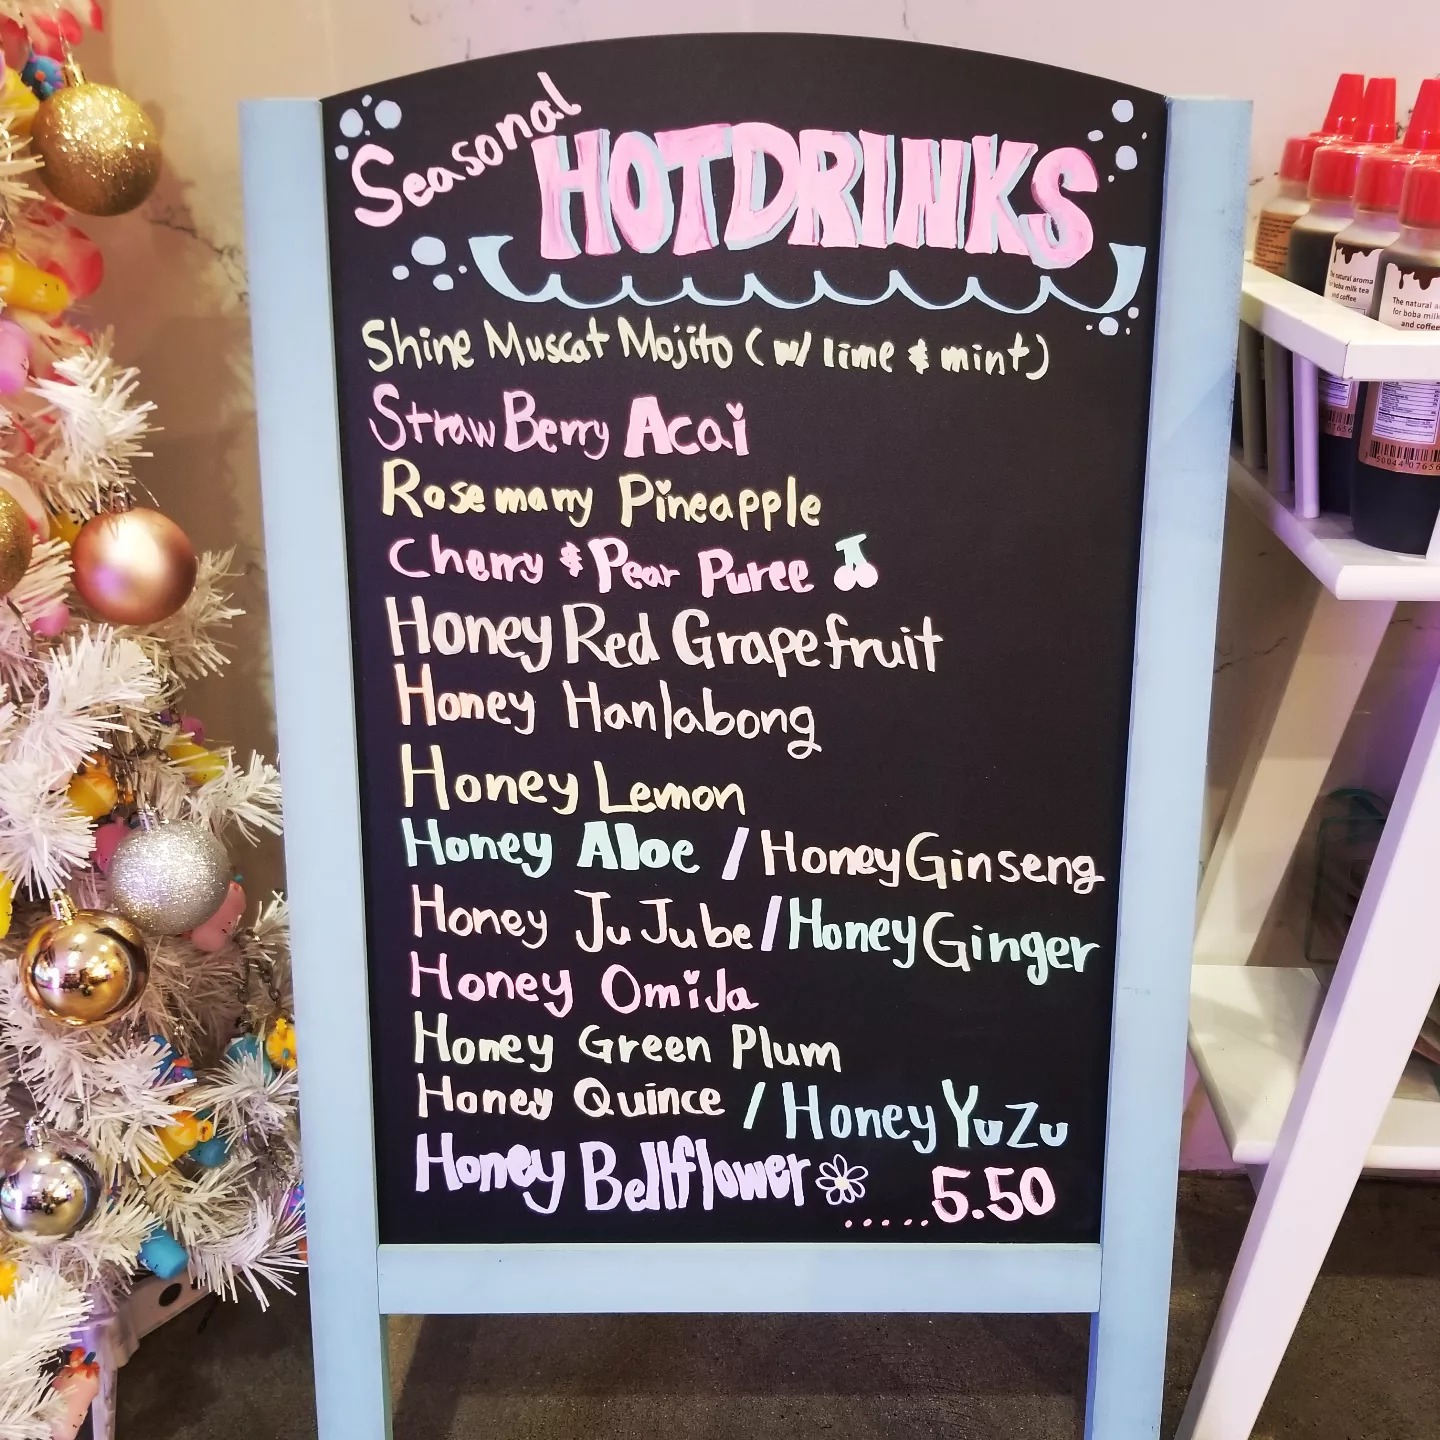 Seasonal HOT DRINKS
Shine Muscat Mojito (w/ lime & mint)
StrawBerry Acai
Rosemarry Pineapple
Cherry & Pear Puree
Honey Red Grapefruit
Honey Hanlabong
Honey Lemon
Honey Aloe / Honey Ginseng
Honey JuJube / Honey Ginger
Honey OmiJa
Honey Green Plum
Honey Quince / Honey YuZu
Honey Bellflower
.....5.50
The natural aroma
for boba milk tea
and coffee
The natural
for boba milk
and coffee